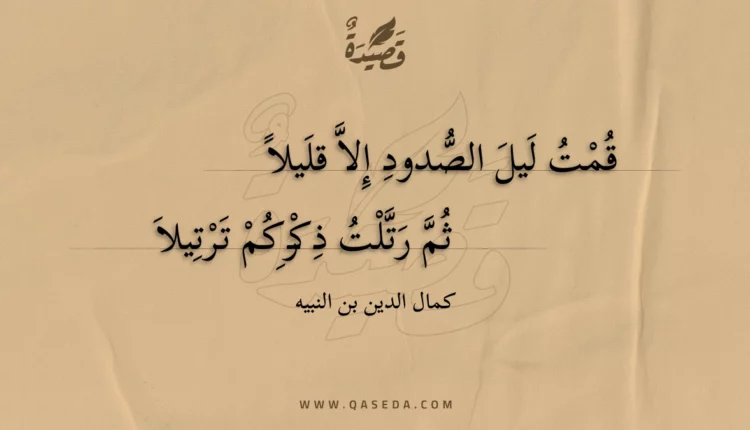 قَصِيدَةٌ
قُمْتُ لَيلَ الصُّدودِ إِلاَّ قلَيلاً
ثُمَّ رَتَّلْتُ ذِكْرِكُمْ تَرْتِيلاَ
كمال الدين بن النبيه
WWW.QASEDA.COM